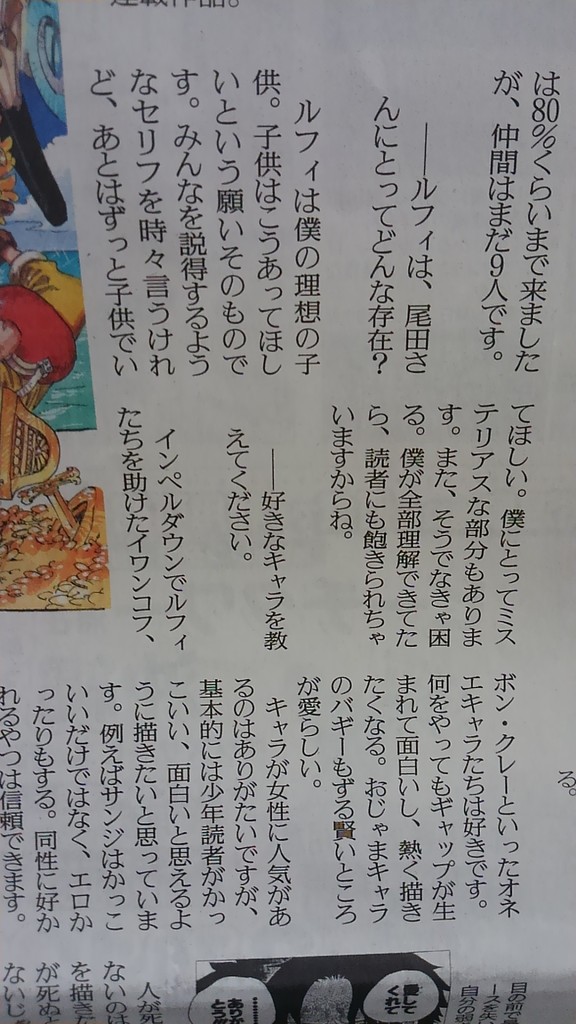 連載作品。
は80%くらいまで来ました
が、仲間はまだ9人です。
――ルフィは、尾田さ
んにとってどんな存在?
ルフィは僕の理想の子
供。子供はこうあってほし
いという願いそのもので
す。みんなを説得するよう
なセリフを時々言うけれ
ど、あとはずっと子供でい
てほしい。僕にとってミス
テリアスな部分もありま
す。また、そうでなきゃ困
る。僕が全部理解できてた
ら、読者にも飽きられちゃ
いますからね。
――好きなキャラを教
えてください。
インペルダウンでルフィ
たちを助けたイワンコフ、
る。
ボン・クレーといったオネ
エキャラたちは好きです。
何をやってもギャップが生
まれて面白いし、熱く描き
たくなる。おじゃまキャラ
のバギーもずる賢いところ
が愛らしい。
キャラが女性に人気があ
るのはありがたいですが、
基本的には少年読者がかっ
こいい、面白いと思えるよ
うに描きたいと思っていま
す。例えばサンジはかっこ
いいだけではなく、エロか
ったりもする。同性に好か
れるやつは信頼できます。
目の前で
ースを失
自分の弱
愛して
くれて
………
ありが
とう
人が死
ないのは
を描きた
が死ぬと
ないじ